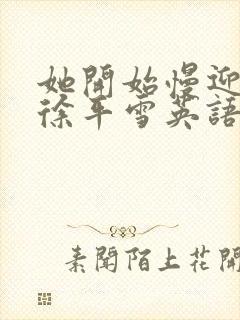 她開始慢迎
徐平雪英語
素聞陌上花開